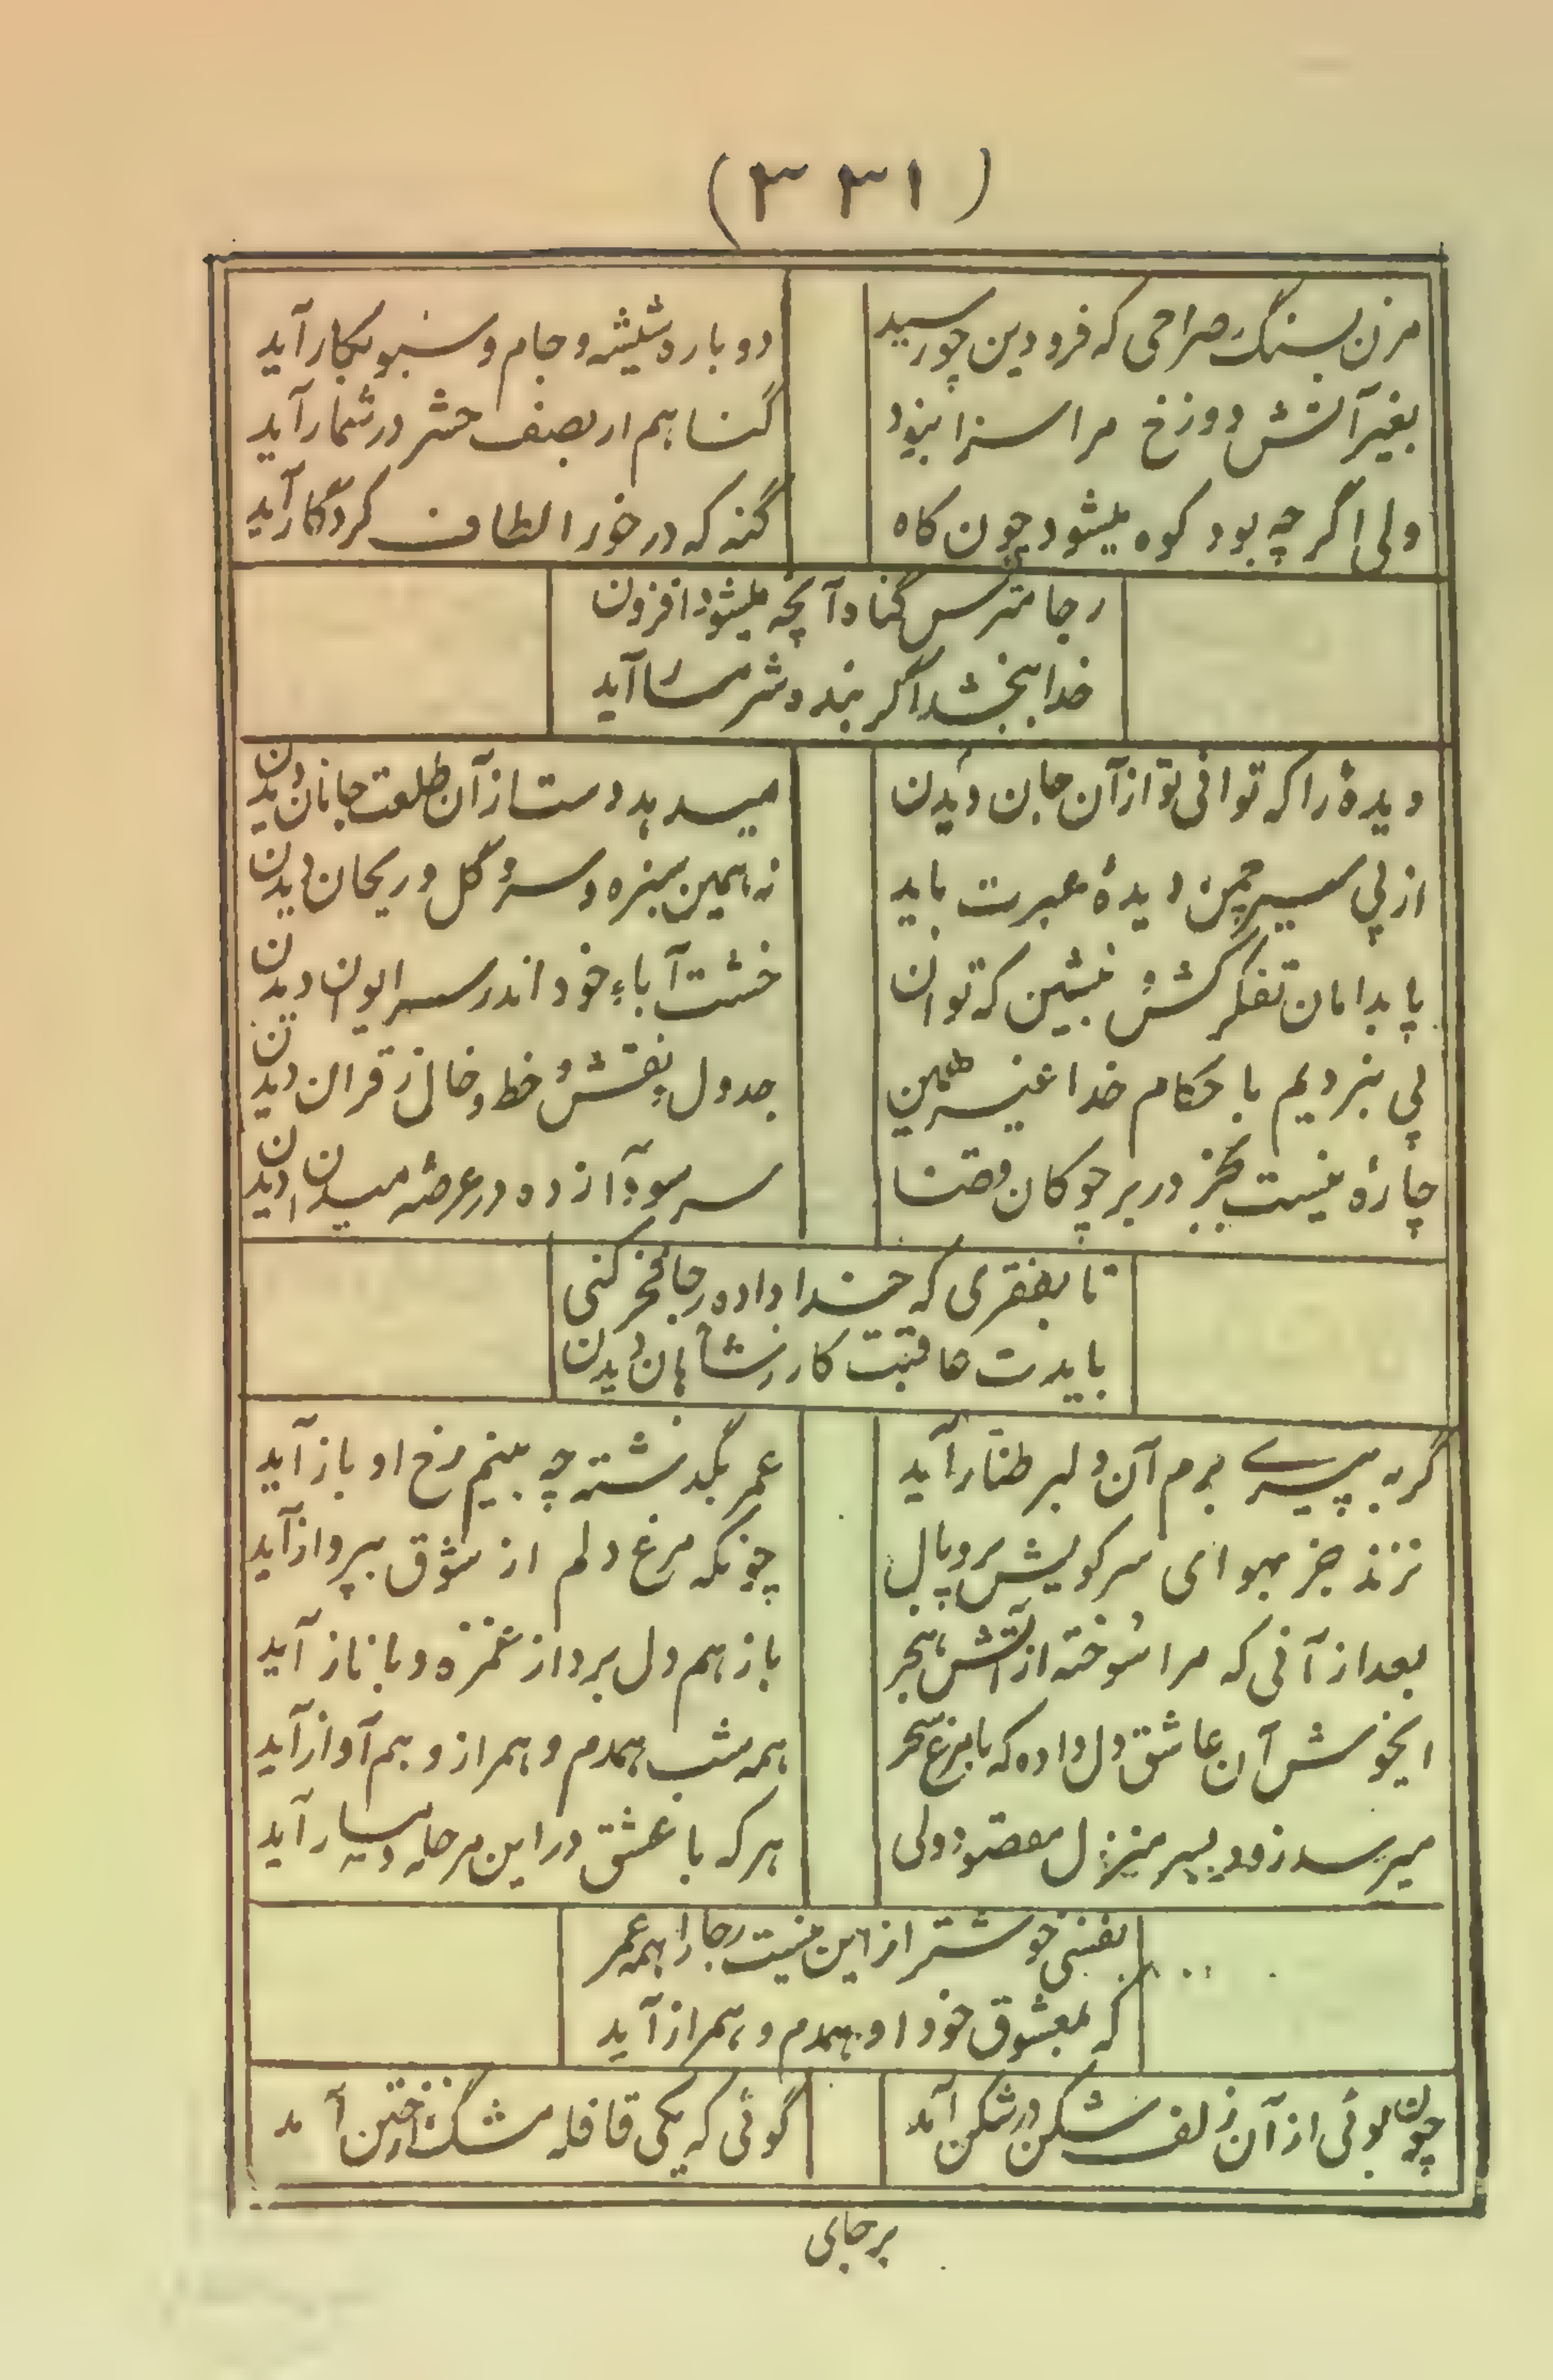 (۳۳۱)
مزن بسنگ صراحی که فرودین چو رسید دوباره شیشه و جام و سبو بکار آید
بغیر آتش دوزخ مرا سزا نبود گناهم ار بصف حشر در شمار آید
ولی اگر چه بود کوه میشود چون کاه گنه که در خور الطاف کردگار آید
رجا مترس گناه آنچه میشود افزون
خدا ببخشد اگر بنده شرمسا آید
دیدهٔ را که توانی تو از آن جان دیدن میدهد دست از آن طلعت جانان دیدن
از پی سیر چمن دیدهٔ عبرت باید نه همین سبزه و سرو گل و ریحان دیدن
پا بدامان تفکر کش و بنشین که توان خشت آباء خود اندر سر ایوان دیدن
پی نبردیم با حکام خدا غیر همین جدول و نقش و خط و خال ز قران دیدن
چارهٔ نیست بجز در بر چوکان قضنا سر سودا زده در عرصه میدان دیدن
تا بفقری که خدا داده رجا فخر کنی
بایدت عاقبت کار ز شاهان دیدن
گر به پیری برم آن دلبر طناز آید عمر بگذشته چه بینم رخ او باز آید
نزند جز بهوای سر کویش پر و بال چونکه مرغ دلم از شوق بپرواز آید
بعد از آنی که مرا سوخته از آتش هجر باز هم دل برد از غمزه و با ناز آید
ایخوش آن عاشق دل داده که با مرغ سحر همه شب همدم و همراز و هم آواز آید
میرسد زود بسر منزل مقصود ولی هر که با عشق در این مرحله آید
بفسی خوشتر از این نیست رجا را همه عمر
که بمعشوق خود او همدم و همراز آید
چون بوئی از آن زلف شکن در شکن آمد گوئی که یکی قافله مشک از ختن آمد
برجای